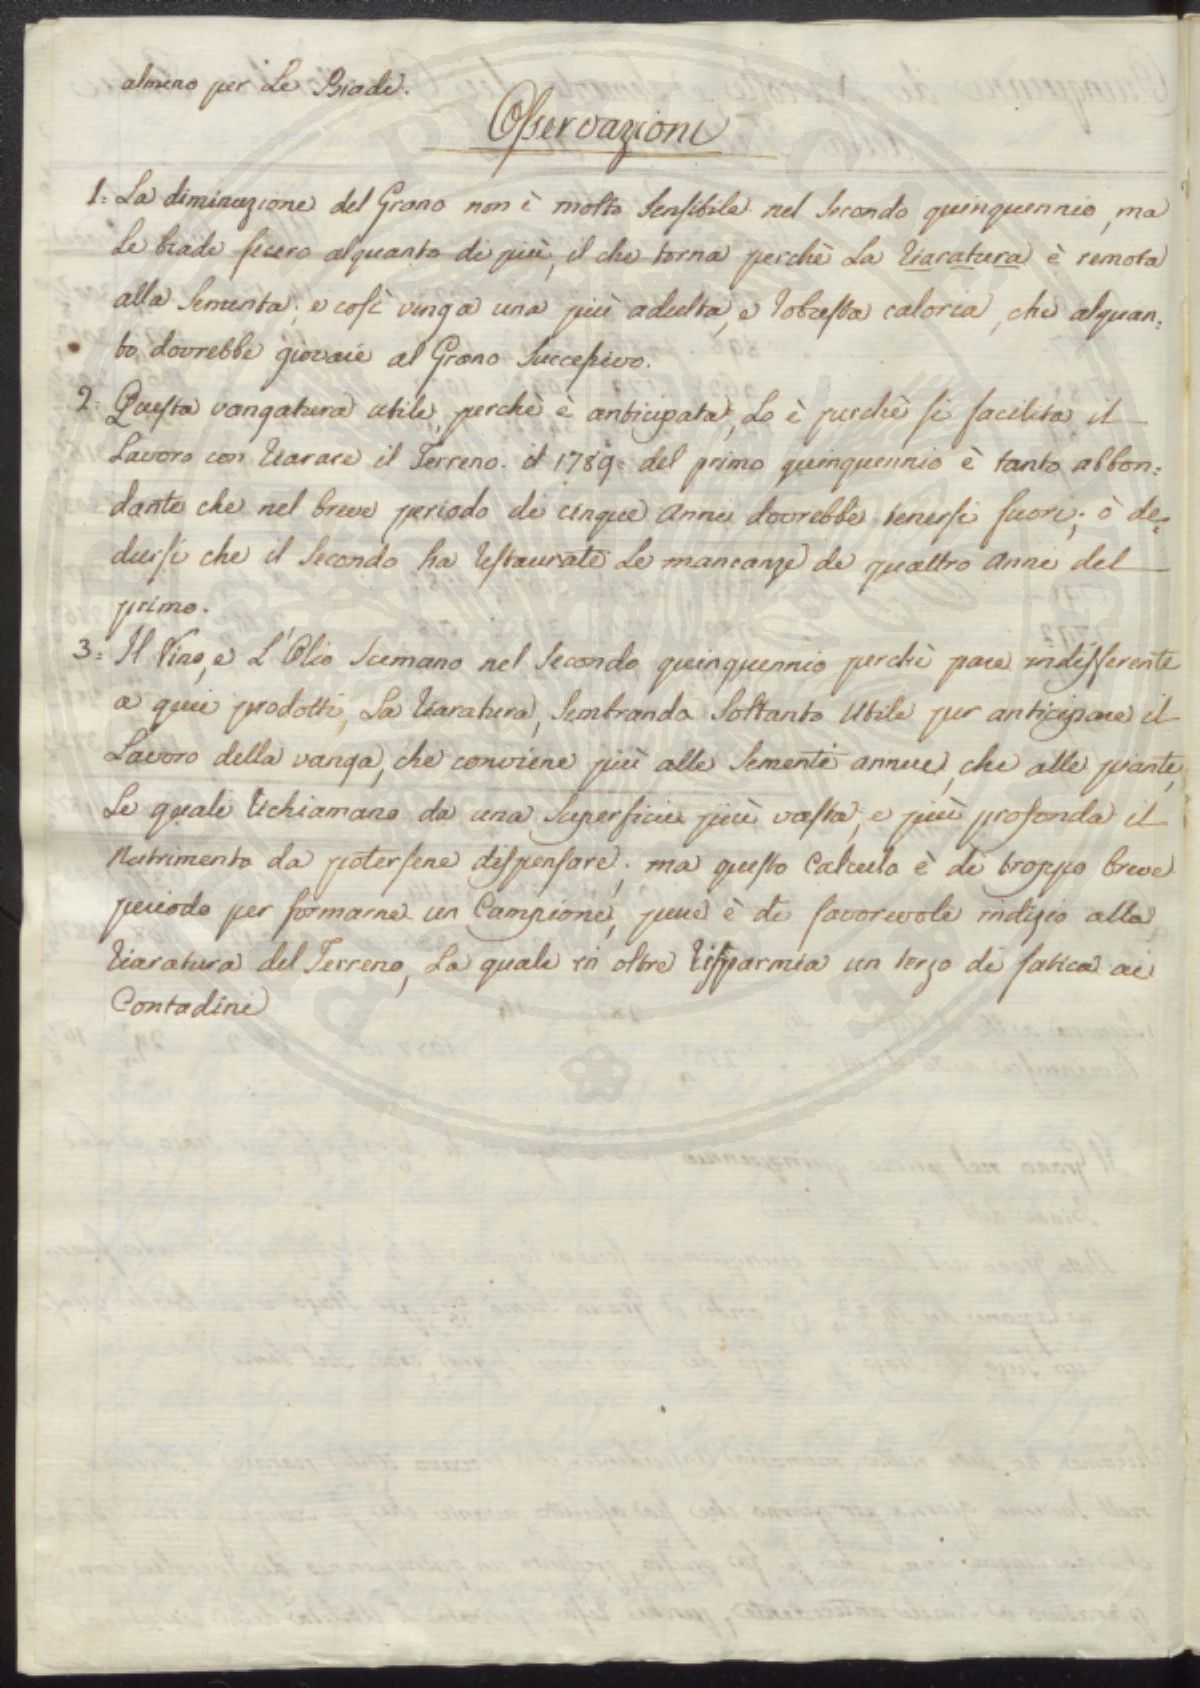 almeno per Le Biade.
Osservazioni
1. La diminuzione del Grano non è molto Sensibile nel Secondo quinquennio, ma
Le biade fecero alquanto di più, il che torna perchè La Riaratura è remota
alla Sementa, e così venga una più adulta, e robusta caloria, che alquan,
to dovrebbe giovare al Grano Successivo.
2. Questa vangatura utile, perchè è anticipata, Lo è perchè si facilita il
Lavoro con Riarare il Terreno. il 1789. del primo quinquennio è tanto abbon,
dante che nel breve periodo di cinque Anni dovrebbe tenersi fuori, ò de,
dursi che il Secondo ha restaurate Le mancanze de quattro Anni del
primo.
3. Il Vino, e L'Olio Scemano nel Secondo quinquennio perchè pare indifferente
a quei prodotti, La Riaratura, Sembrando Soltanto Utile per anticipare il
Lavoro della vanga, che conviene più alle Sementi annue, che alle piante,
Le quali Richiamano da una Superficie più vasta, e più profonda il
Nutrimento da potersene dispensare, ma questo Calculo è di troppo breve
periodo per formarne un Campione, pure è di favorevole indizio alla
Riaratura del Terreno, La quale in oltre Risparmia un terzo di fatica ai
Contadini